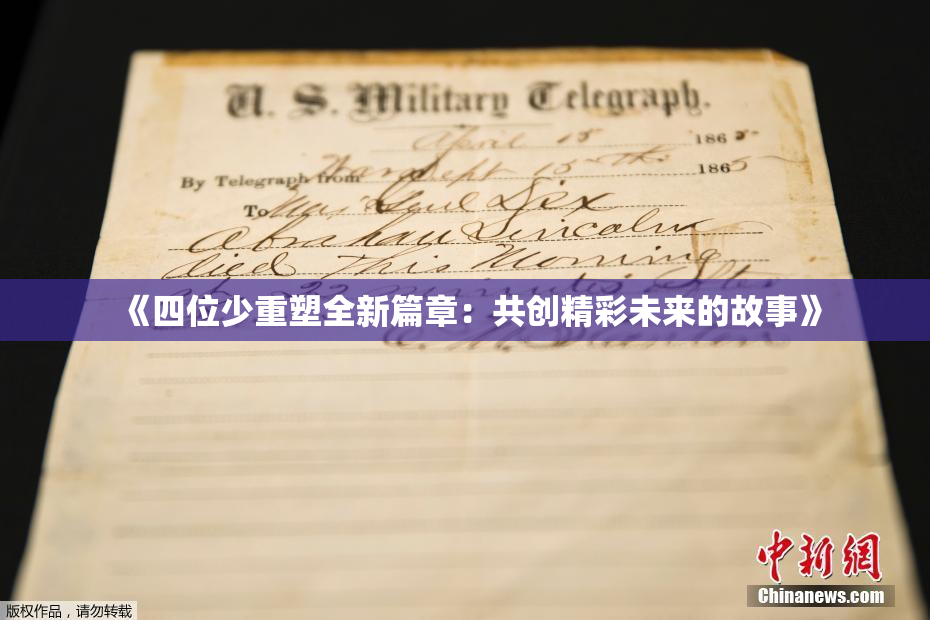 U. S. Military Telegraph.
April 15 1865
By Telegraph from War Dept 15th 1865
To Maj Genl Dix
Abraham Lincoln
died This Morning
at 22 minutes After
《四位少重塑全新篇章：共创精彩未来的故事》
E. M. Stanton
中新網
Chinanews.com
版权作品，请勿转载